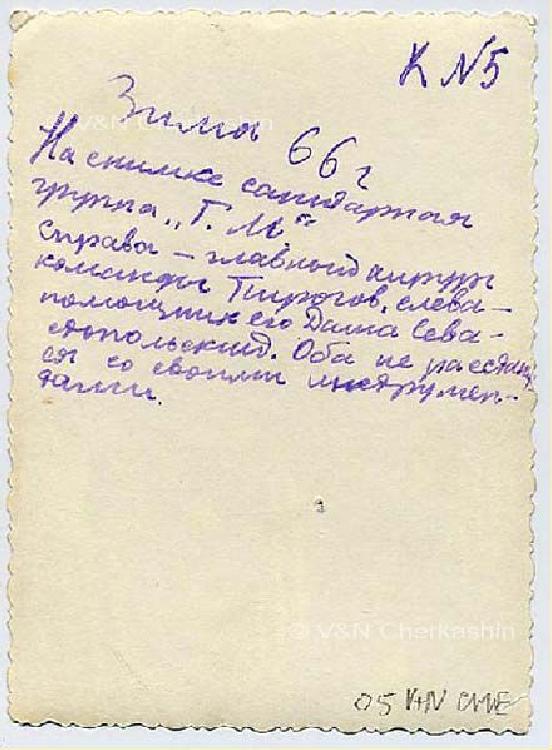 К N5
Зима 66 г
На снимке санитарная
группа „Г. М"
Справа – главный хирург
команды Пирогов, слева –
помощник его Даша Сева-
стопольский. Оба не расстают
ся со своими инструмен-
тами.
© V&N Cherkashin
05 V+N CHE